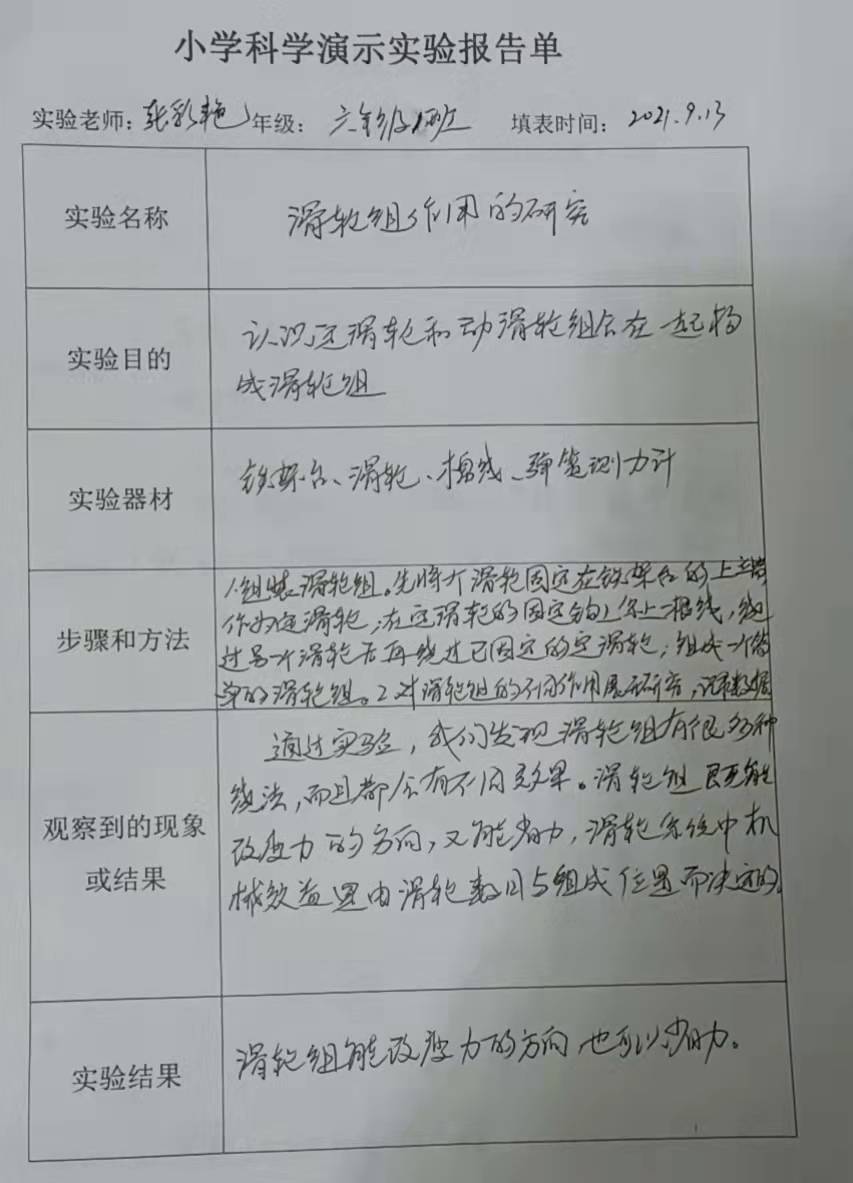 小学科学演示实验报告单
实验老师: 张彩艳 年级: 六年级1班 填表时间: 2021.9.13
实验名称
滑轮组作用的研究
实验目的
认识定滑轮和动滑轮组合在一起构
成滑轮组
实验器材
铁架台、滑轮、棉线、弹簧测力计
步骤和方法
1.组装滑轮组。先将一个滑轮固定在铁架台的上端
作为定滑轮,在定滑轮的固定钩上系上一根线,绕
过另一个滑轮后再绕过已固定的定滑轮,组成一个简
单的滑轮组。2.对滑轮组的不同作用展开研究,记录数据
观察到的现象
或结果
通过实验,我们发现滑轮组有很多种
绕法,而且都会有不同效果。滑轮组既能
改变力的方向,又能省力,滑轮系统中机
械效益是由滑轮数目与组成位置而决定的。
实验结果
滑轮组能改变力的方向也可以省力。